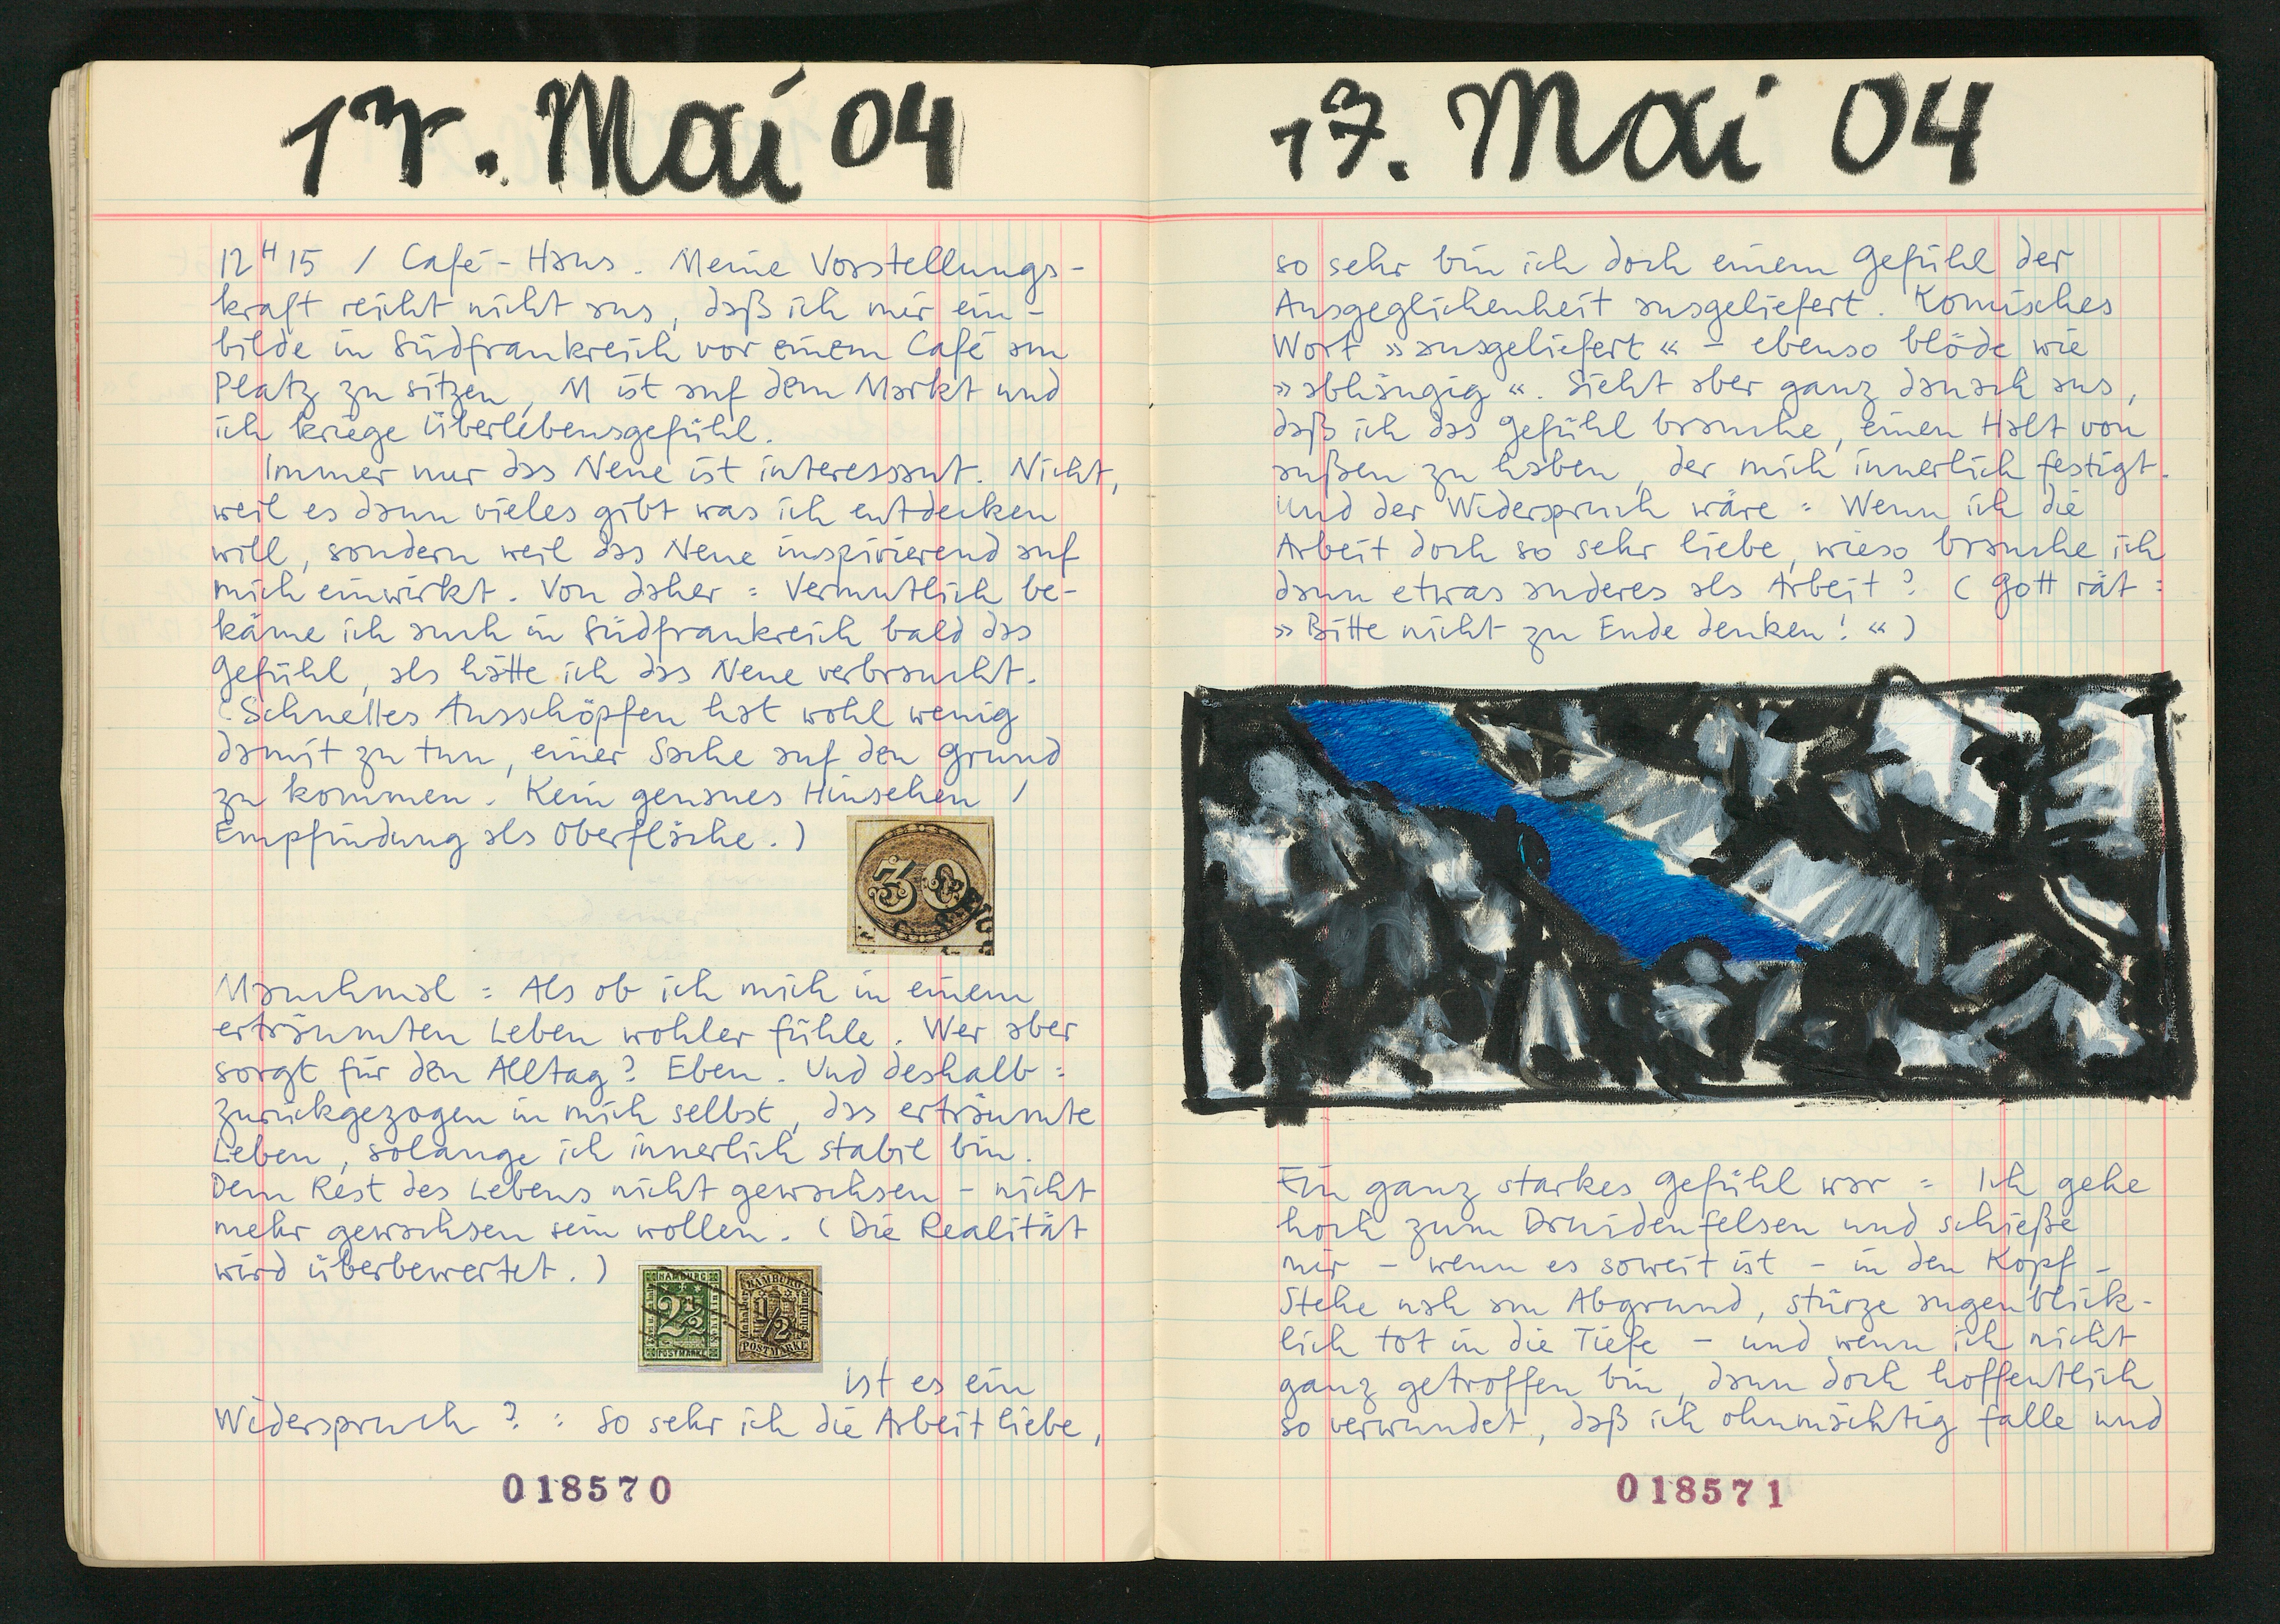 17. Mai 04
12 H 15 / Café-Haus. Meine Vorstellungs-
kraft reicht nicht aus, daß ich mir ein-
bilde in Südfrankreich vor einem Café am
Platz zu sitzen, M ist auf dem Markt und
ich kriege Überlebensgefühl.
Immer nur das Neue ist interessant. Nicht,
weil es dann vieles gibt was ich entdecken
will, sondern weil das Neue inspirierend auf
mich einwirkt. Von daher: Vermutlich be-
käme ich auch in Südfrankreich bald das
Gefühl, als hätte ich das Neue verbraucht.
(Schnelles Ausschöpfen hat wohl wenig
damit zu tun, einer Sache auf den Grund
zu kommen. Kein genaues Hinsehen /
Empfindung als Oberfläche.)
30
Manchmal: Als ob ich mich in einem
erträumten Leben wohler fühle. Wer aber
sorgt für den Alltag? Eben. Und deshalb:
zurückgezogen in mich selbst, das erträumte
Leben, solange ich innerlich stabil bin.
Dem Rest des Lebens nicht gewachsen – nicht
mehr gewachsen sein wollen. (Die Realität
wird überbewertet.)
HAMBURG
2½
POSTMARKE
HAMBURG
½
POSTMARKE
Ist es ein
Widerspruch?: So sehr ich die Arbeit liebe,
018570
17. Mai 04
so sehr bin ich doch einem Gefühl der
Ausgeglichenheit ausgeliefert. Komisches
Wort »ausgeliefert« – ebenso blöde wie
»abhängig«. Sieht aber ganz danach aus,
daß ich das Gefühl brauche, einen Halt von
außen zu haben, der mich innerlich festigt.
Und der Widerspruch wäre: Wenn ich die
Arbeit doch so sehr liebe, wieso brauche ich
dann etwas anderes als Arbeit? (Gott rät:
»Bitte nicht zu Ende denken!«)
Ein ganz starkes Gefühl war: Ich gehe
hoch zum Druidenfelsen und schieße
mir – wenn es soweit ist – in den Kopf –
Stehe nah am Abgrund, stürze augenblick-
lich tot in die Tiefe – und wenn ich nicht
ganz getroffen bin, dann doch hoffentlich
so verwundet, daß ich ohnmächtig falle und
018571